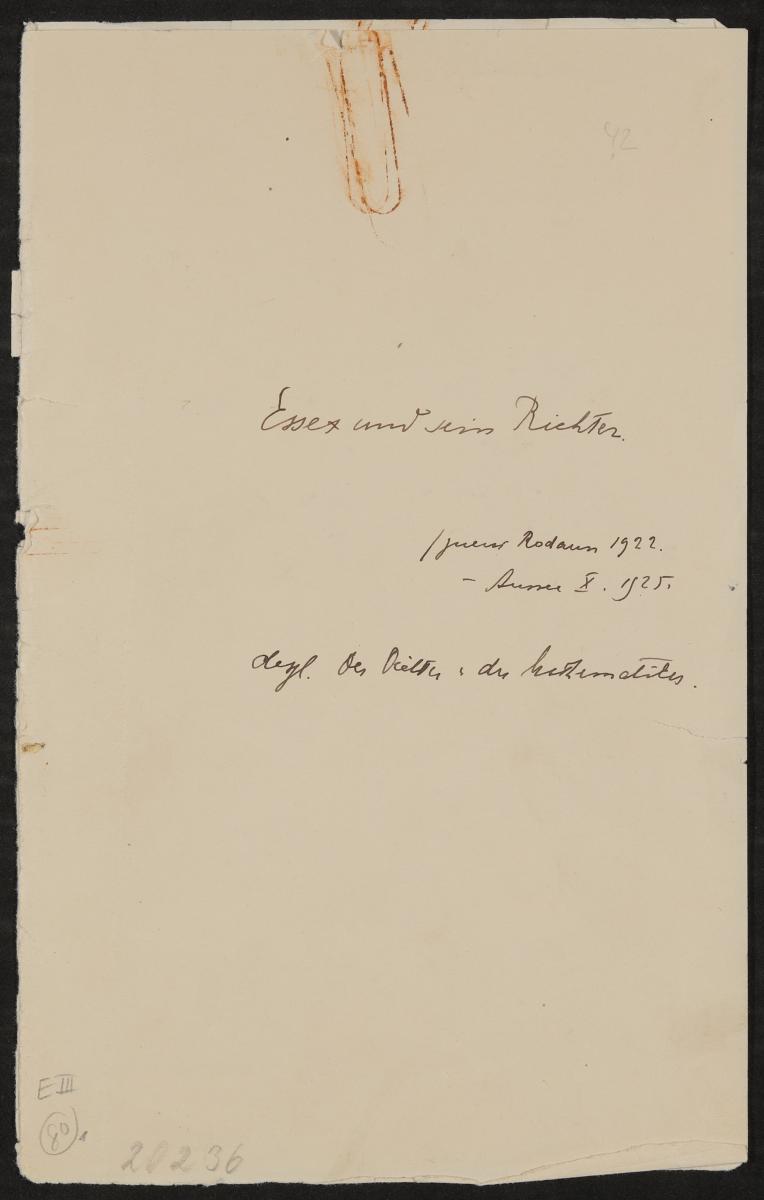 42
Essex und sein Richter.
/zuerst Rodaun 1922.
– Aussee X. 1925.
desgl. Der Dichter u die Mathematiker.
E III
80.
20236